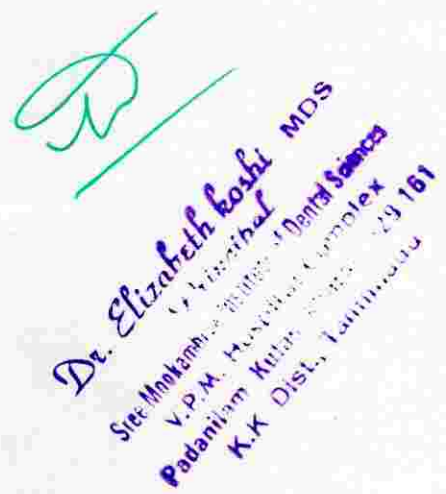 Dr. Elizabeth koshi MDS
Principal
Sree Mookambika Institute of Dental Sciences
V.P.M. Hospital Complex
Padanilam Kulas 29 161
K.K Dist. Tamilnadu